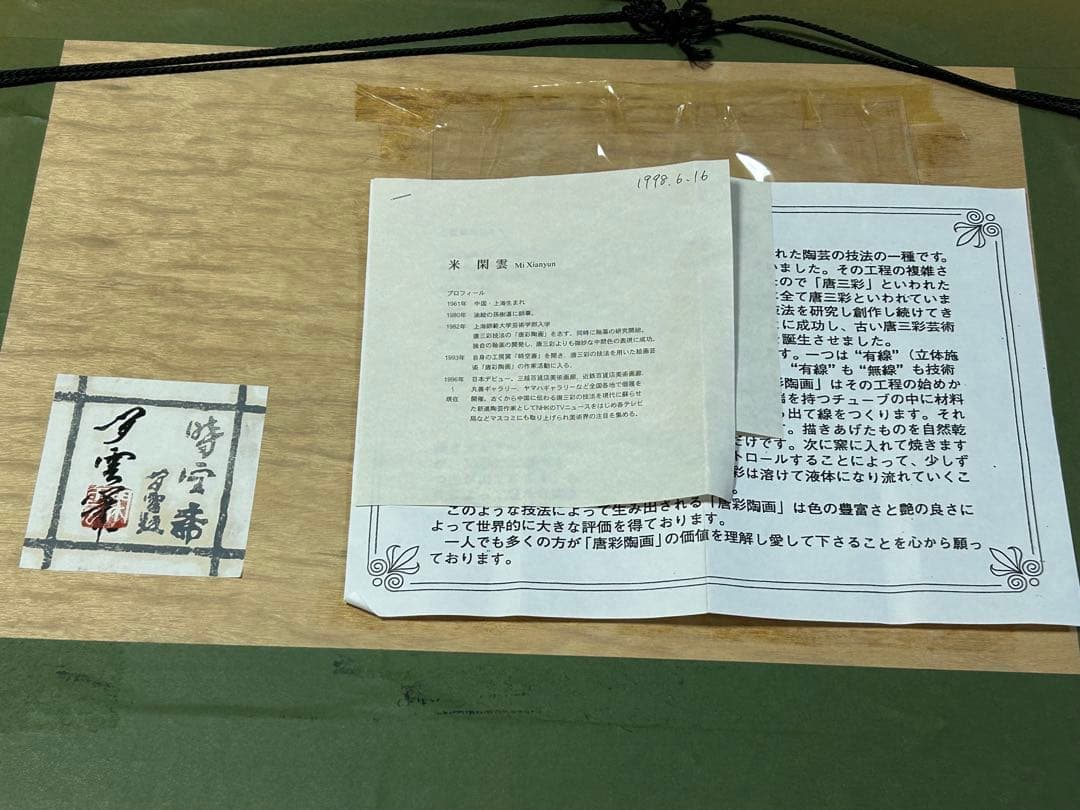 1998.6.16
米 閑雲 Mi Xianyun
プロフィール
1961年 中国・上海生まれ
1980年 油絵の孫樹滋に師事。
1982年 上海師範大学芸術学部入学
唐三彩技法の「唐彩陶画」を志す。同時に釉薬の研究開始。
独自の釉薬の開発し、唐三彩よりも微妙な中間色の表現に成功。
1993年 自身の工房窯「時空斎」を開き、唐三彩の技法を用いた絵画芸
術「唐彩陶画」の作家活動に入る。
1996年 日本デビュー。三越百貨店美術画廊、近鉄百貨店美術画廊、
~ 丸善ギャラリー、ヤマハギャラリーなど全国各地で個展を
現在 開催。古くから中国に伝わる唐三彩の技法を現代に蘇らせ
た新進陶芸作家としてNHKのTVニュースをはじめ各テレビ
局などマスコミにも取り上げられ美術界の注目を集める。
れた陶芸の技法の一種です。
いました。その工程の複雑さ
たので「唐三彩」といわれた
は全て唐三彩といわれていま
技法を研究し創作し続けてき
に成功し、古い唐三彩芸術
を誕生させました。
す。一つは“有線”（立体施
“有線”も“無線”も技術
彩陶画」はその工程の始めか
を持つチューブの中に材料
出て線をつくります。それ
す。描きあげたものを自然乾
だけです。次に窯に入れて焼きます
トロールすることによって、少しず
彩は溶けて液体になり流れていくこ
このような技法によって生み出される「唐彩陶画」は色の豊富さと艶の良さに
よって世界的に大きな評価を得ております。
一人でも多くの方が「唐彩陶画」の価値を理解し愛して下さることを心から願っ
ております。
時空斎